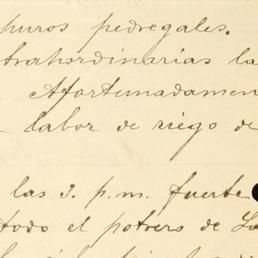 puros pedregales.
trahordinarias la
Afortunadamen
labor de riego de
las 3. p.m. fuerte
todo el potrero de La